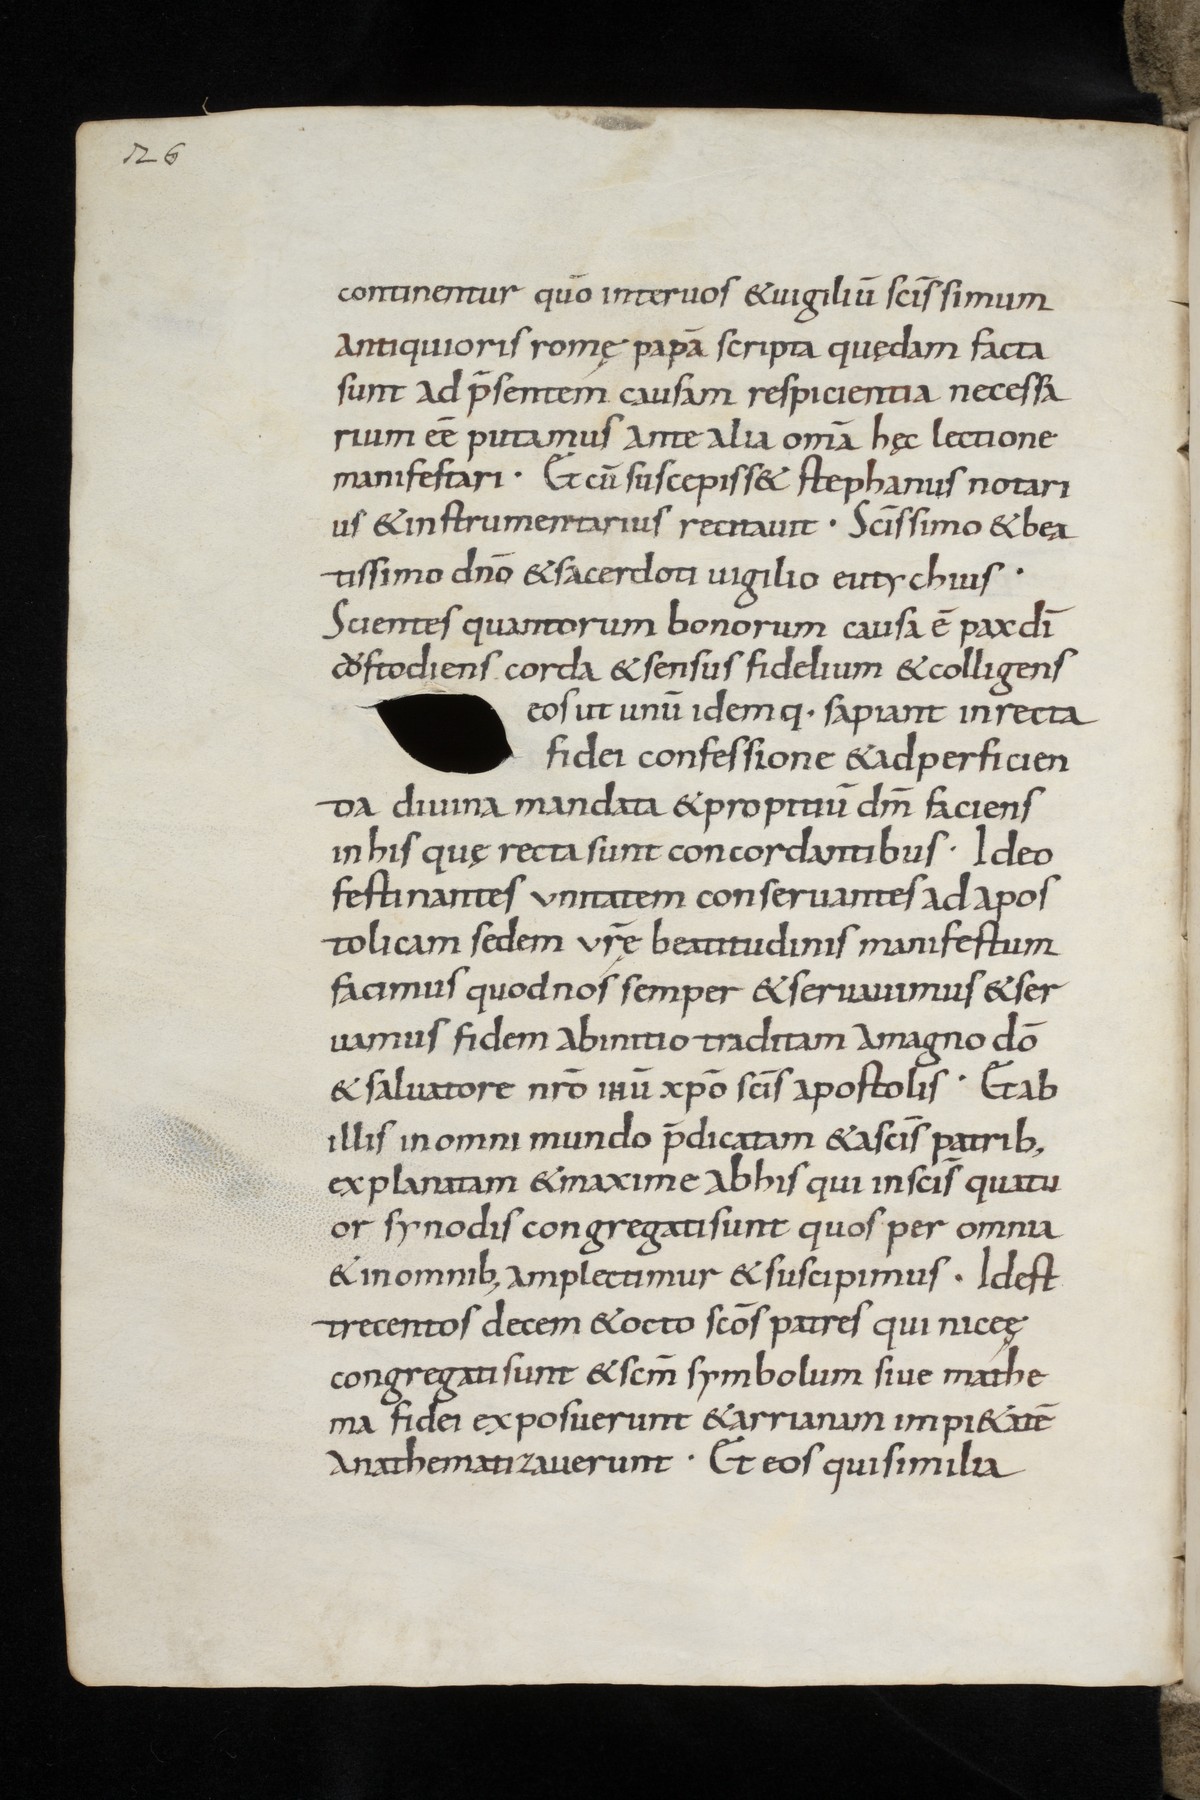 126
continentur qūo interuos &uigiliū scīssimum
antiquioris romę papā scripta quędam facta
sunt ad p̄sentem causam respicientia necessa
rium eē putamus ante alia omā hęc lectione
manifestari · Et cū suscepiss& stephanus notari
us &instrumentarius recitauit · Scīssimo &bea
tissimo dn̄o &sacerdoti uigilio eutychius ·
Scientes quantorum bonorum causa ē pax dī
custodiens corda &sensus fidelium &colligens
eos ut unū idemq· sapiant inrecta
fidei confessione &adperficien
da diuina mandata &propitiū dm̄ faciens
inhis quę recta sunt concordantibus · Ideo
festinantes vnitatem conseruantes ad apos
tolicam sedem vr̄ę beatitudinis manifestum
facimus quodnos semper &seruauimus &ser
uamus fidem abinitio traditam amagno dō
&saluatore nrō iħū xpō scīs apostolis · Et ab
illis inomni mundo p̄dicatam &ascīs patrib,
explanatam &maxime abhis qui inscīs quatu
or synodis congregati sunt quos per omnia
&inomnib, amplectimur &suscipimus · Idest
trecentos decem &octo scōs patres qui niceę
congregati sunt &scm̄ symbolum siue mathe
ma fidei exposuerunt &arrianam impi&atē
anathematizauerunt · Et eos quisimilia